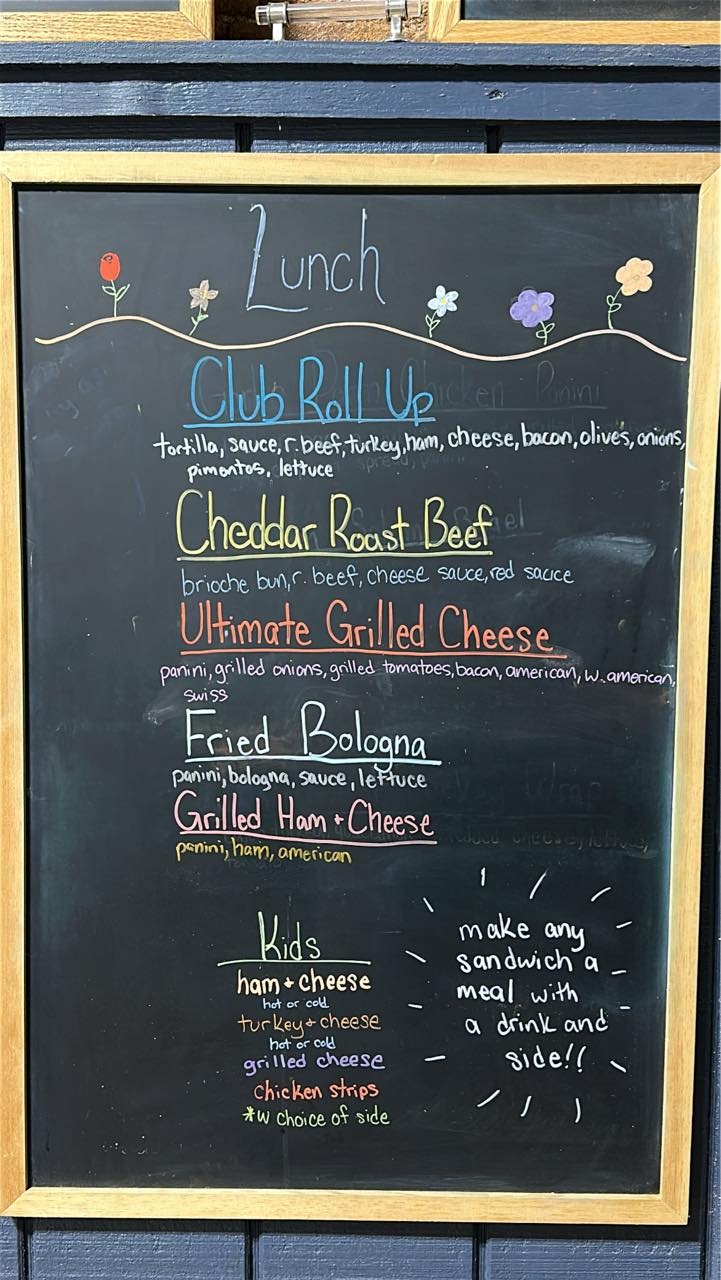 Lunch
Club Roll Up
tortilla, sauce, r. beef, turkey, ham, cheese, bacon, olives, onions,
pimentos, lettuce
Cheddar Roast Beef
brioche bun, r. beef, cheese sauce, red sauce
Ultimate Grilled Cheese
panini, grilled onions, grilled tomatoes, bacon, american, w. american,
swiss
Fried Bologna
panini, bologna, sauce, lettuce
Grilled Ham + Cheese
panini, ham, american
Kids
ham + cheese
hot or cold
turkey + cheese
hot or cold
grilled cheese
chicken strips
*w choice of side
make any
sandwich a
meal with
a drink and
side!!